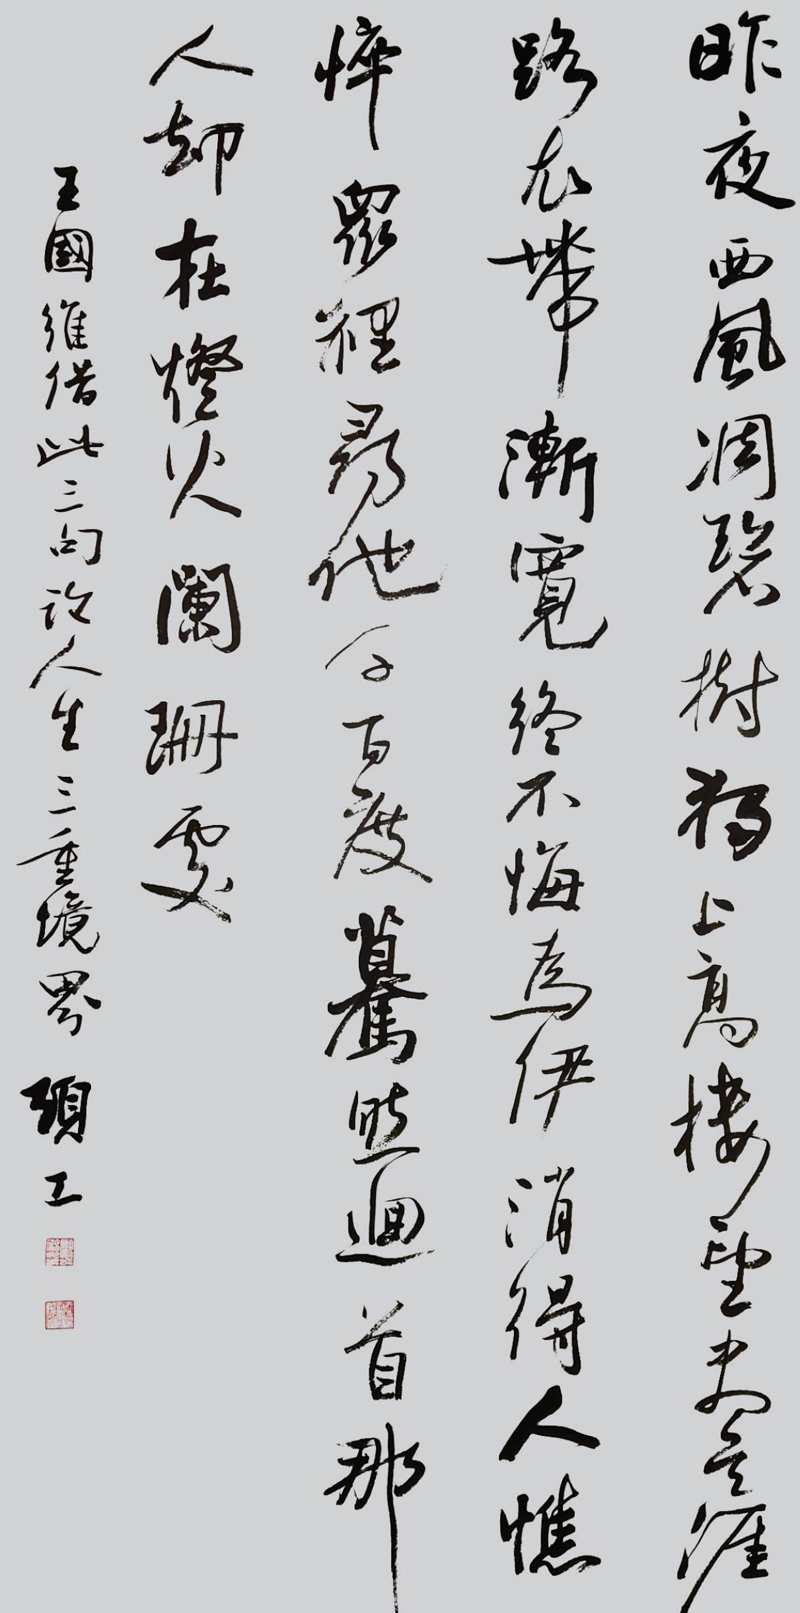 昨夜西風凋碧樹獨上高樓望盡天涯
路衣帶漸寬終不悔為伊消得人憔
悴眾裡尋他千百度驀然迴首那
人卻在燈火闌珊處
王國維借此三句說人生三重境界 項工